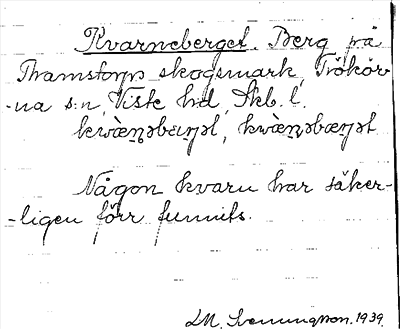 Kvarneberget. Berg på
Thamstorps skogsmark, Trökör-
-na s:n, Viste hd, Skb. l.
kwὰːn̥əbærjət, kwὰːn̥əbærjət
Någon kvarn har säker-
-ligen förr funnits.
LM. Svenungsson. 1939.